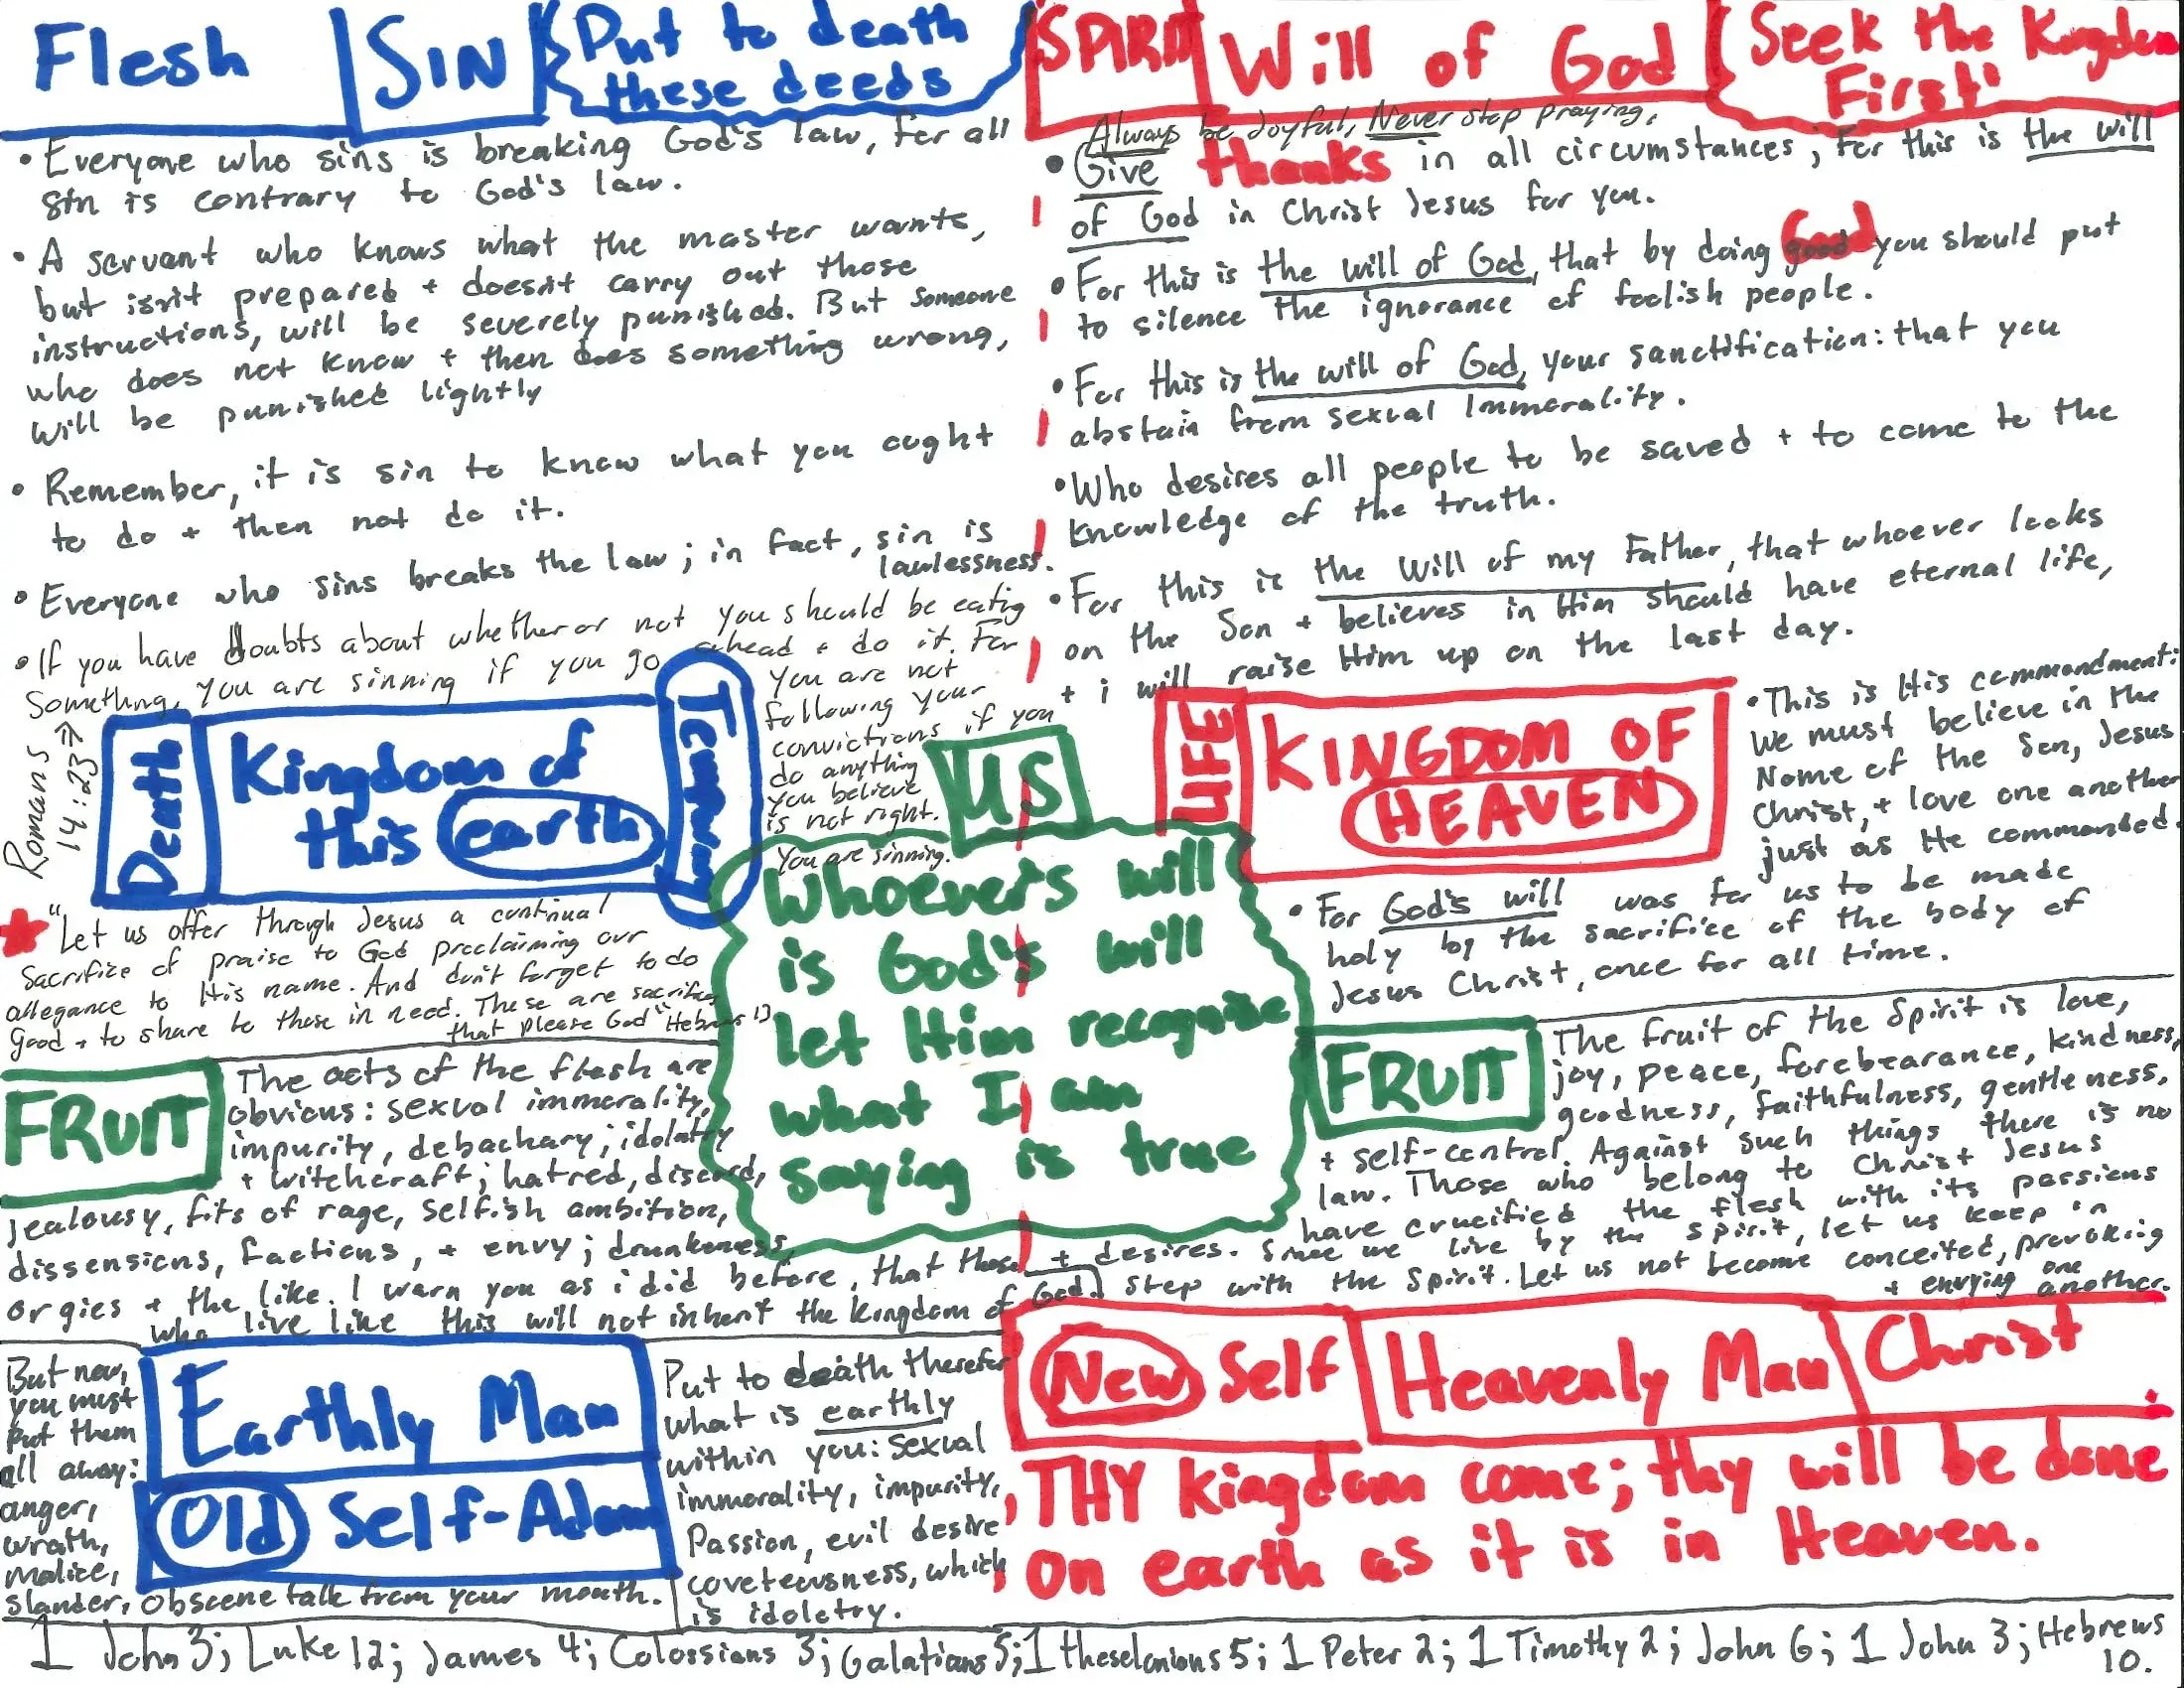 Flesh
SIN
Put to death
these deeds
• Everyone who sins is breaking God's law, for all
sin is contrary to God's law.
• A servant who knows what the master wants,
but isn't prepared + doesn't carry out those
instructions, will be severely punished. But someone
who does not know + then does something wrong,
will be punished lightly
• Remember, it is sin to know what you ought
to do + then not do it.
• Everyone who sins breaks the law; in fact, sin is
lawlessness.
• If you have doubts about whether or not you should be eatig
something, you are sinning if you go ahead + do it. For
you are not
following your
convictions if you
do anything
you believe
is not right.
You are sinning.
Romans
14:23 →
Death
Kingdom of
this earth
Temporary
"Let us offer through Jesus a continual
sacrifice of praise to God proclaiming our
allegance to His name. And don't forget to do
good + to share to those in need. These are sacrifices
that please God" Hebrews 13
FRUIT
The acts of the flesh are
obvious: sexual immorality,
impurity, debachary; idolatry
+ witchcraft; hatred, discord,
jealousy, fits of rage, selfish ambition,
dissensions, factions, + envy; drunkeness,
orgies + the like. I warn you as i did before, that those
who live like this will not inherit the kingdom of God.
But now,
you must
put them
all away:
anger,
wrath,
malice,
slander, obscene talk from your mouth.
Earthly Man
Old Self-Adam
Put to death therefor
what is earthly
within you: sexual
immorality, impurity,
Passion, evil desire
coveteousness, which
is idoletry.
US
Whoever's will
is God's will
let Him recognize
what I am
saying is true
SPIRIT
Will of God
Seek the Kingdom
First!
Always be Joyful, Never stop praying,
• Give thanks in all circumstances; for this is the will
of God in Christ Jesus for you.
• For this is the will of God, that by doing good God you should put
to silence the ignorance of foolish people.
• For this is the will of God, your sanctification: that you
abstain from sexual Immorality.
• Who desires all people to be saved + to come to the
knowledge of the truth.
• For this is the will of my Father, that whoever looks
on the Son + believes in Him should have eternal life,
+ i will raise Him up on the last day.
LIFE
KINGDOM OF
HEAVEN
• This is His commandment:
We must believe in the
Name of the Son, Jesus
Christ, + love one another
just as He commanded.
• For God's will was for us to be made
holy by the sacrifice of the body of
Jesus Christ, once for all time.
FRUIT
The fruit of the Spirit is love,
joy, peace, forebearance, kindness,
goodness, faithfulness, gentleness,
+ self-control. Against such things there is no
law. Those who belong to Christ Jesus
have crucified the flesh with its passions
+ desires. Since we live by the spirit, let us keep in
step with the Spirit. Let us not become conceited, provoking
+ envying one another.
New Self
Heavenly Man
Christ
THY kingdom come; thy will be done
on earth as it is in Heaven.
1 John 3; Luke 12; James 4; Colossians 3; Galatians 5; 1 theselonions 5; 1 Peter 2; 1 Timothy 2; John 6; 1 John 3; Hebrews
10.